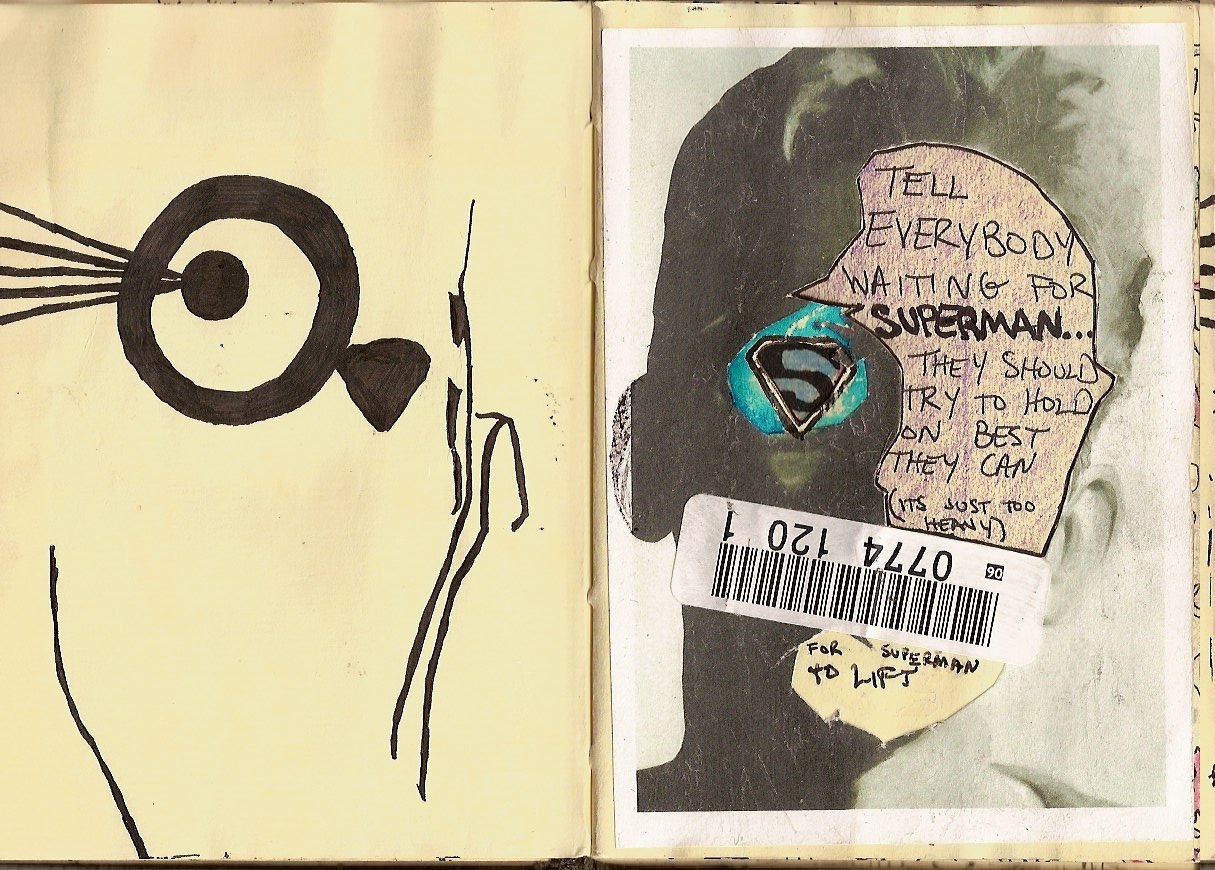 TELL
EVERYBODY
WAITING FOR
SUPERMAN...
THEY SHOULD
TRY TO HOLD
ON BEST
THEY CAN
(ITS JUST TOO
HEAVY)
S
0774 120 1
06
FOR SUPERMAN
TO LIFT